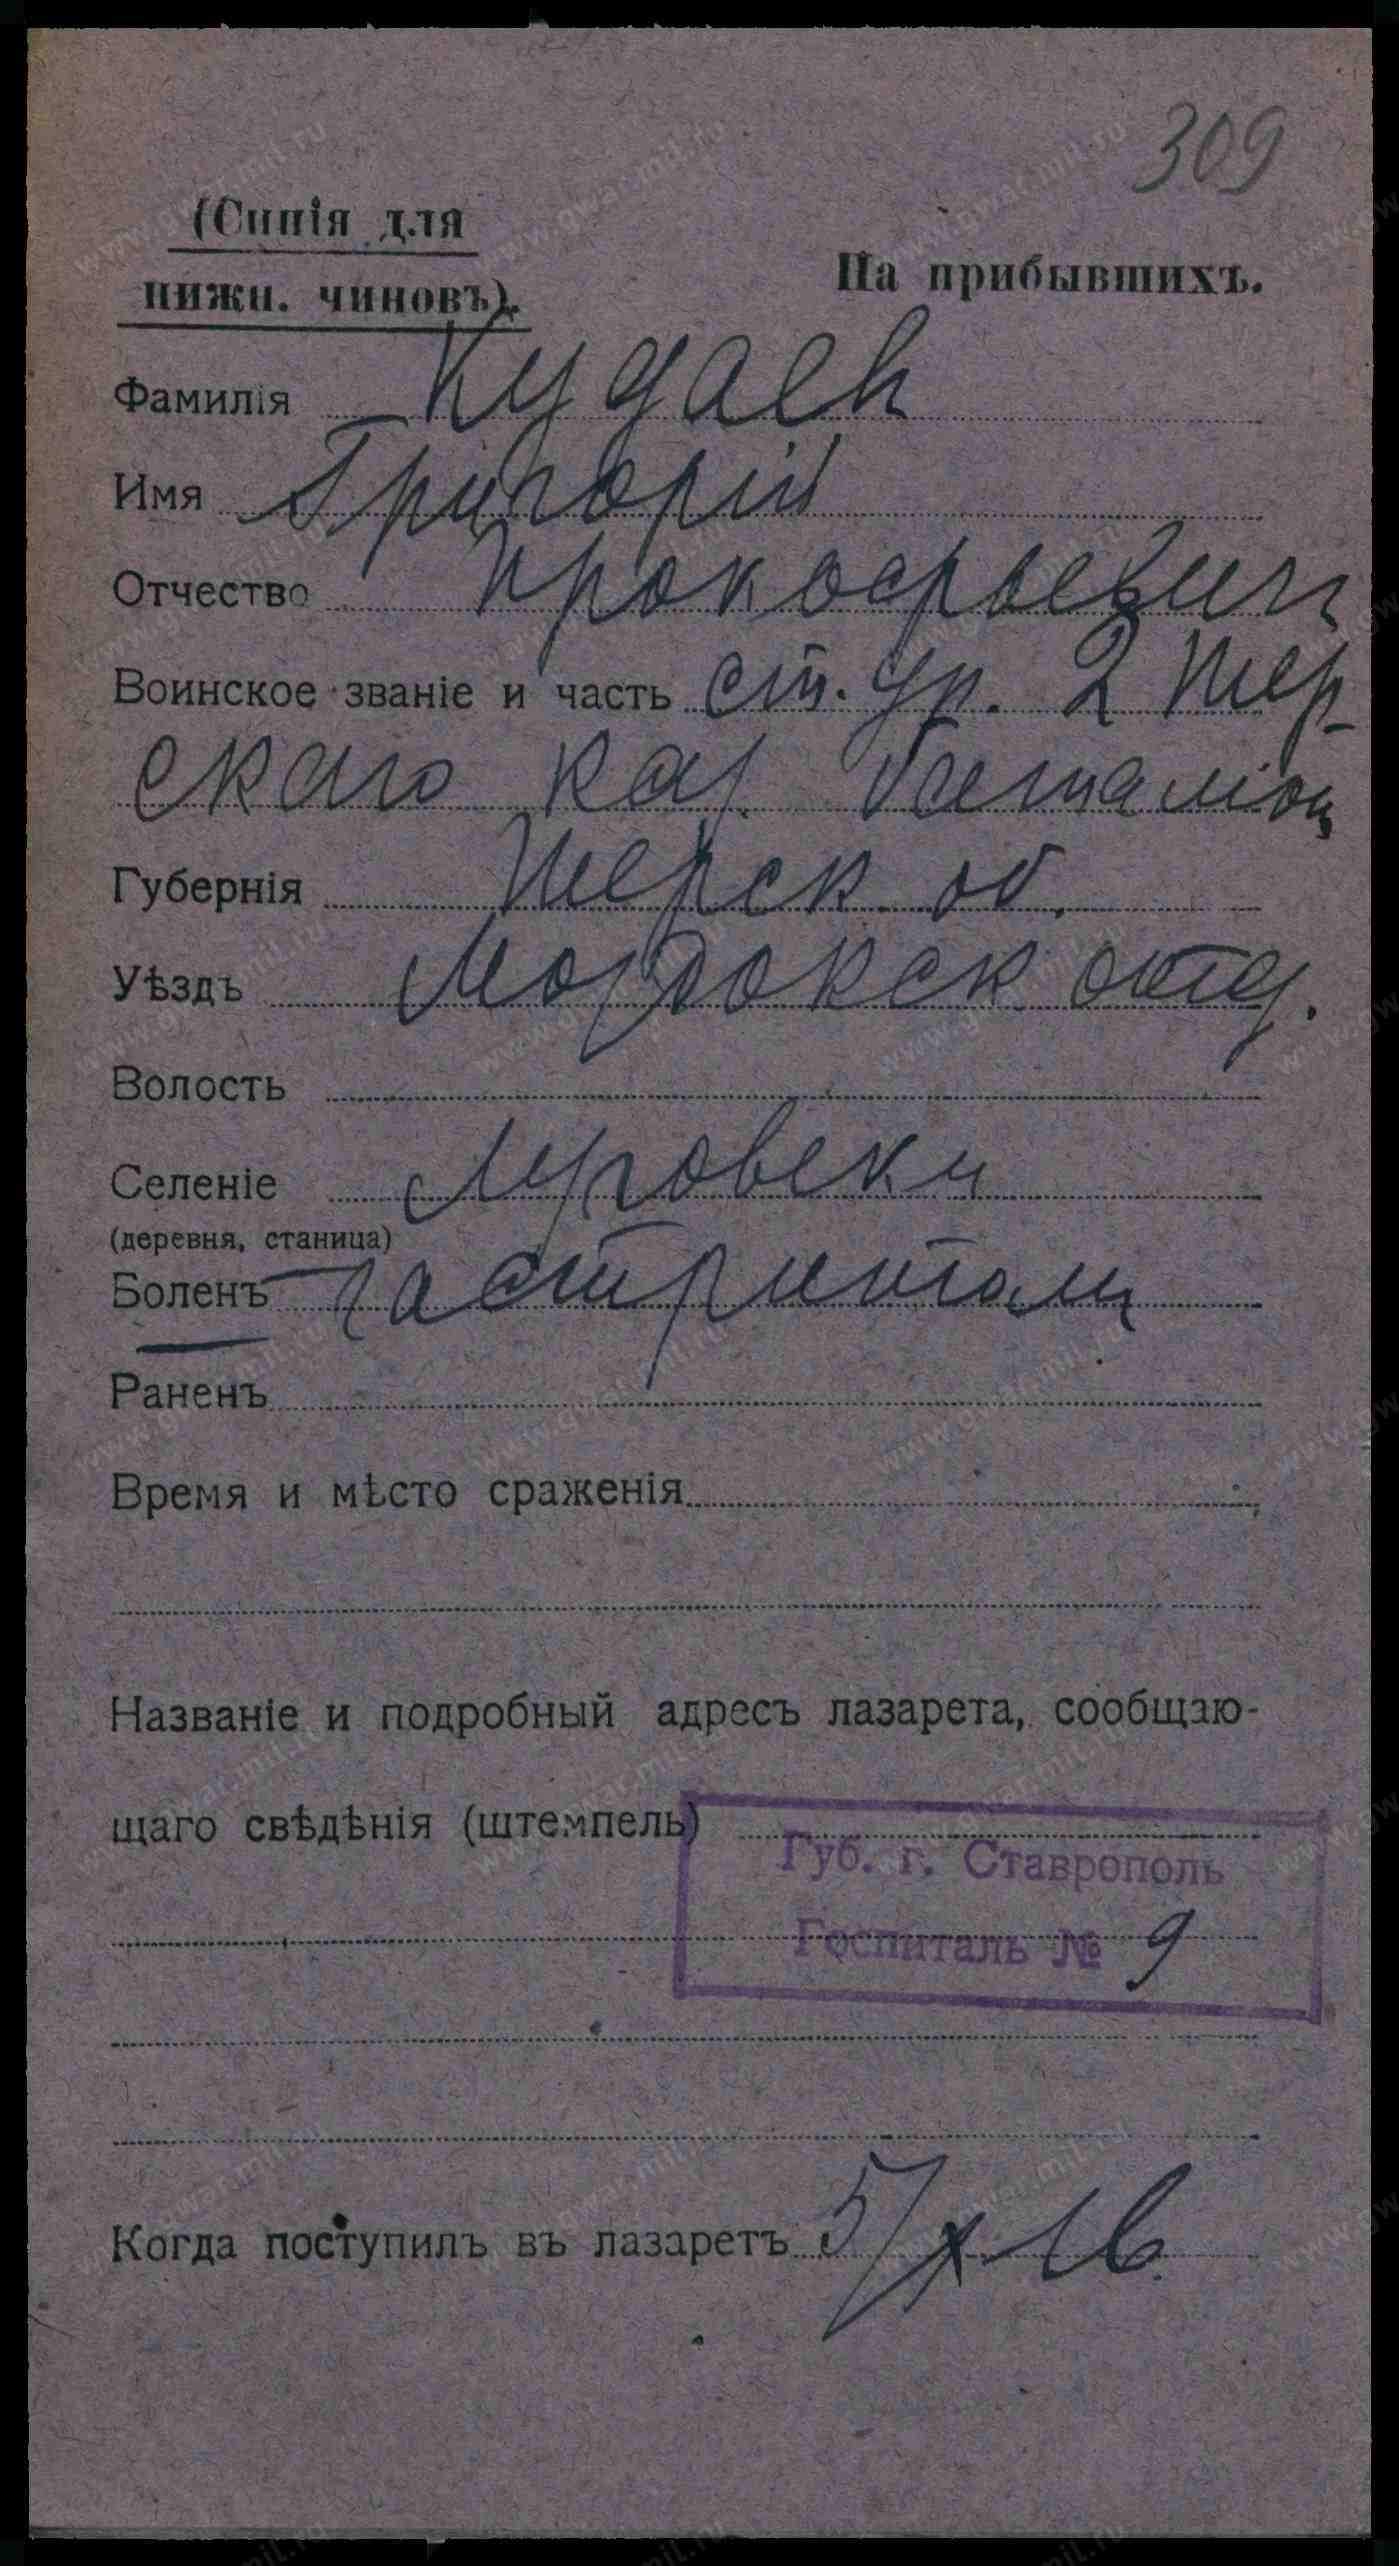 309
(Синія для
нижн. чиновъ).
На прибывшихъ.
Фамилія Кудаев
Имя Григорій
Отчество Прокофьевич
Воинское званіе и часть ст. ур. 2 Тер-
скаго каз. баталіон
Губернія Терск. об.
Уѣздъ Моздокск отд.
Волость
Селеніе
(деревня, станица)
Боленъ гастритом
Раненъ
Время и мѣсто сраженія
Названіе и подробный адресъ лазарета, сообщаю-
щаго свѣдѣнія (штемпель)
Губ. г. Ставрополь
Госпиталь № 9
Когда поступилъ въ лазаретъ 5/X 16